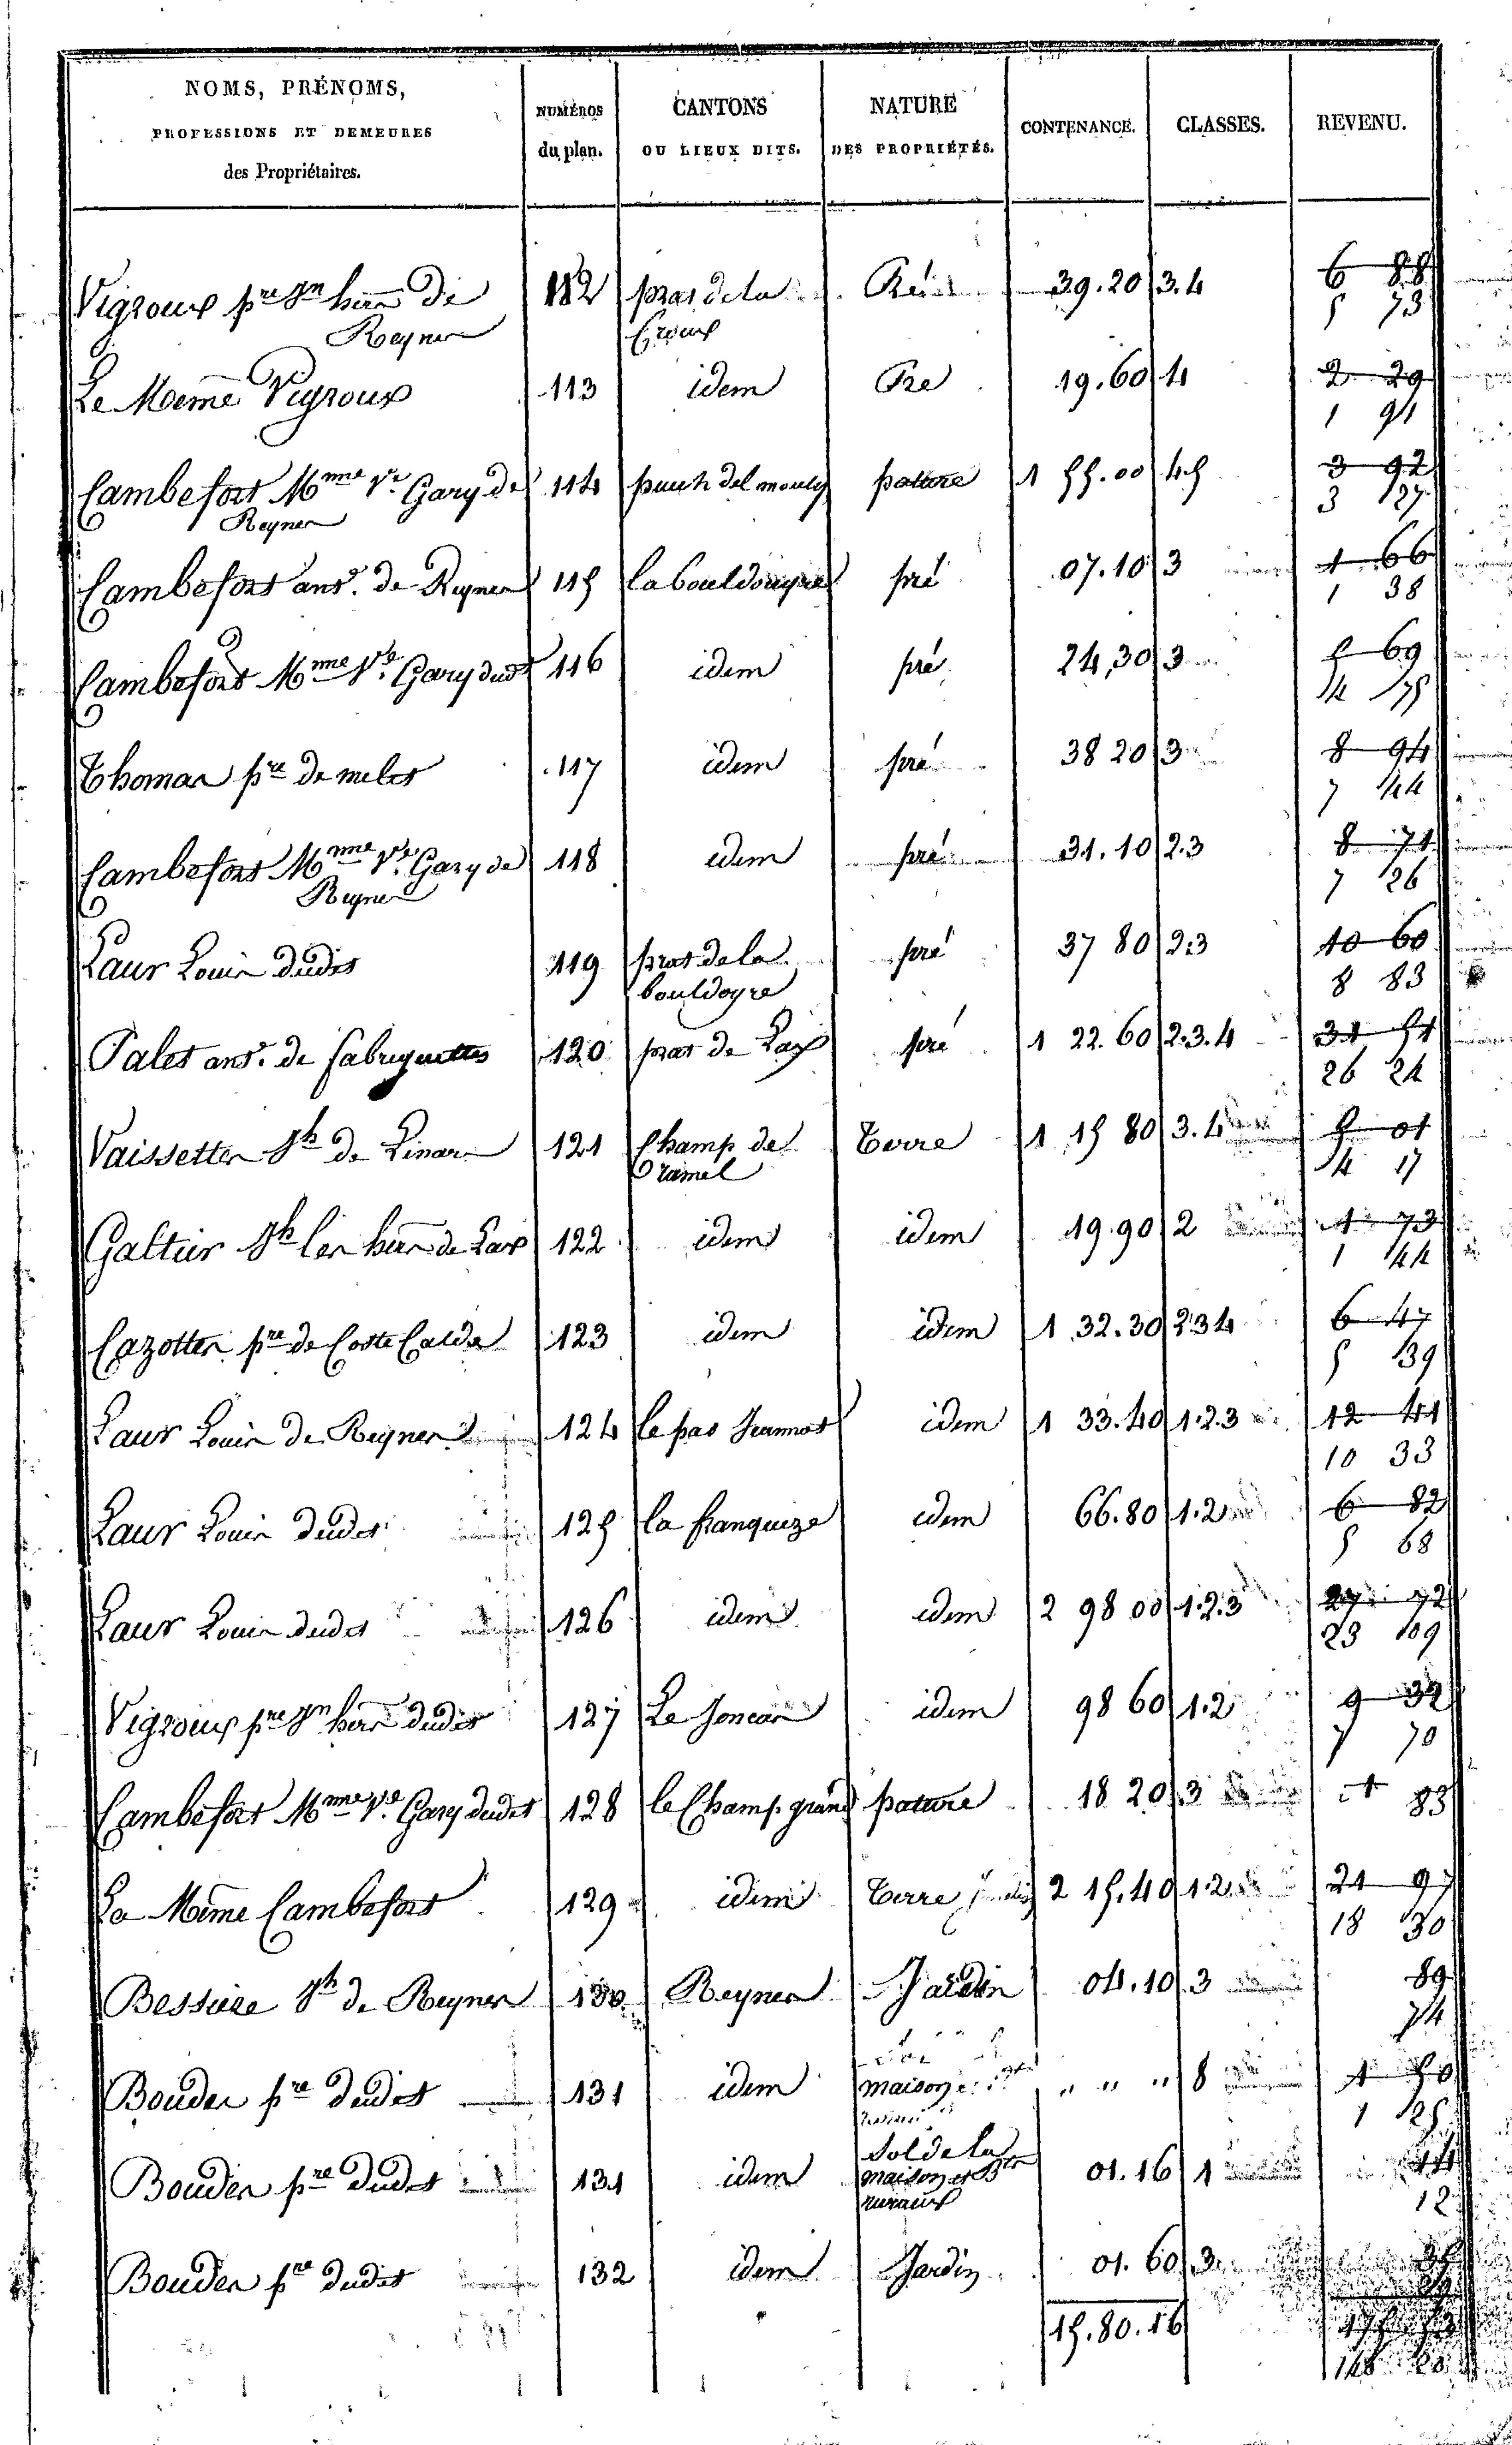 NOMS, PRÉNOMS, PROFESSIONS ET DEMEURES des Propriétaires. | NUMÉROS du plan. | CANTONS OU LIEUX DITS. | NATURE DES PROPRIÉTÉS. | CONTENANCE. | CLASSES. | REVENU.
Vigroux pre Jn hier de 112 pras de la Pré 39.20 3.4 6 88
Reyner Croux 5 73
Le Meme Vigroux 113 idem Pre 19.60 4 2 29
1 91
Cambefort Mme Ve Gary de 114 puech del mouly pature 1 55.00 4 5 3 92
Reyner 3 27
Cambefort ant. de Reyner 115 la bouldouyre pré 07.10 3 1 66
1 38
Cambefort Mme Ve Gary dudt 116 idem pré 24,30 3 5 69
4 75
Thomas pre de melet 117 idem pré 38 20 3 8 94
7 44
Cambefort Mme Ve Gary de 118 idem pré 31.10 2.3 8 71
Reyner 7 26
Laur Louis dudit 119 prat de la pré 37 80 2.3 10 60
bouldoyre 8 83
Palet ant. de fabreguettes 120 prat de Lax pré 1 22.60 2.3.4 31 51
26 24
Vaissettes Jh de Linars 121 Champ de Terre 1 15 80 3.4 5 01
ramel 4 17
Galtier Jh les hier de Lax 122 idem idem 19.90 2 1 73
1 44
Cazottes pre de Coste Calde 123 idem idem 1 32.30 2 3 4 6 47
5 39
Laur Louis de Reyner 124 le pas Jeannot idem 1 33.40 1.2.3 12 41
10 33
Laur Louis dudit 125 la franqueze idem 66.80 1.2 6 82
5 68
Laur Louis dudit 126 idem idem 2 98 00 1.2.3 27 72
23 09
Vigroux pre Jn hier dudit 127 Le Joncas idem 98 60 1.2 9 32
7 70
Cambefort Mme Ve Gary dudit 128 le Champ grand pature 18 20 3 1 83
La Même Cambefort 129 idem Terre 2 15.40 1.2 21 97
18 30
Bessiere Jh de Reyner 130 Reyner Jardin 04.10 3 89
74
Boudes pre dudit 131 idem maison " " " 8 1 50
1 25
Boudes pre dudit 131 idem Sol de la 01.16 1 14
maison et Bts 12
ruraux
Boudes pre dudit 132 idem Jardin 01.60 3
15.80.16